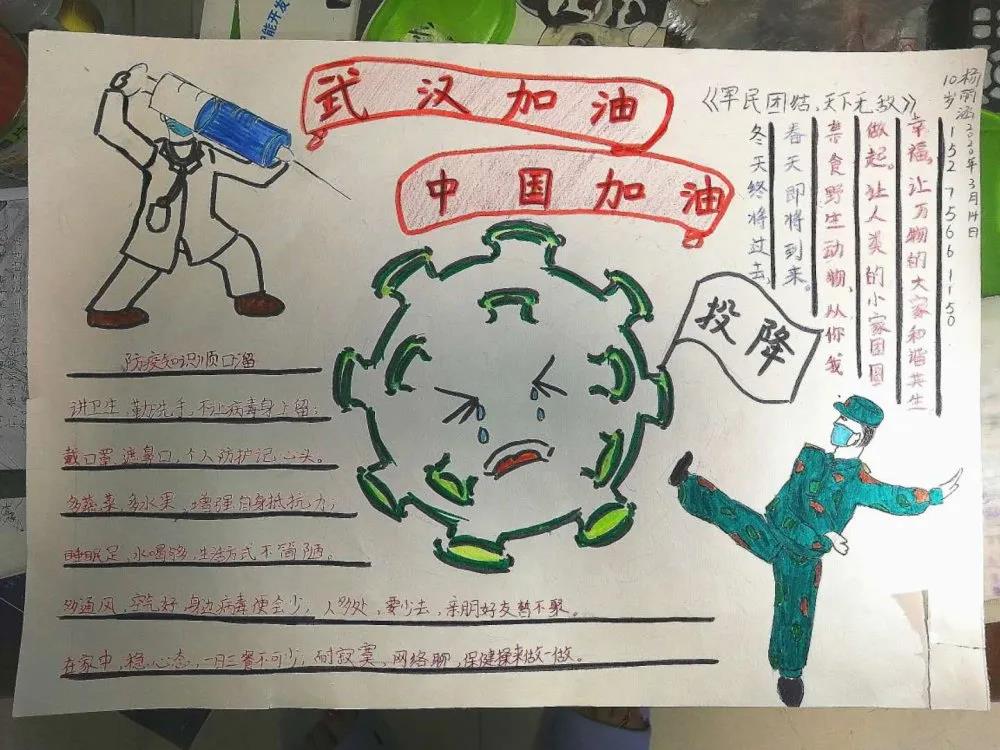 能开发
武汉加油
中国加油
《军民团结,天下无敌》
冬天终将过去,
春天即将到来。
禁食野生动物、从你我
做起。让人类的小家团圆
幸福,让万物的大家和谐共生
10岁
2020年3月14日
15275661150
投降
防疫知识顺口溜
讲卫生,勤洗手,不让病毒身上留;
戴口罩,遮鼻口,个人防护记心头。
多蔬菜,多水果,增强自身抵抗力;
睡眠足,水喝够,生活方式不简陋。
多通风,空气好,身边病毒便会少;人多处,要少去,亲朋好友暂不聚。
在家中,稳心态,一日三餐不可少;耐寂寞,网络聊,保健操来做一做。